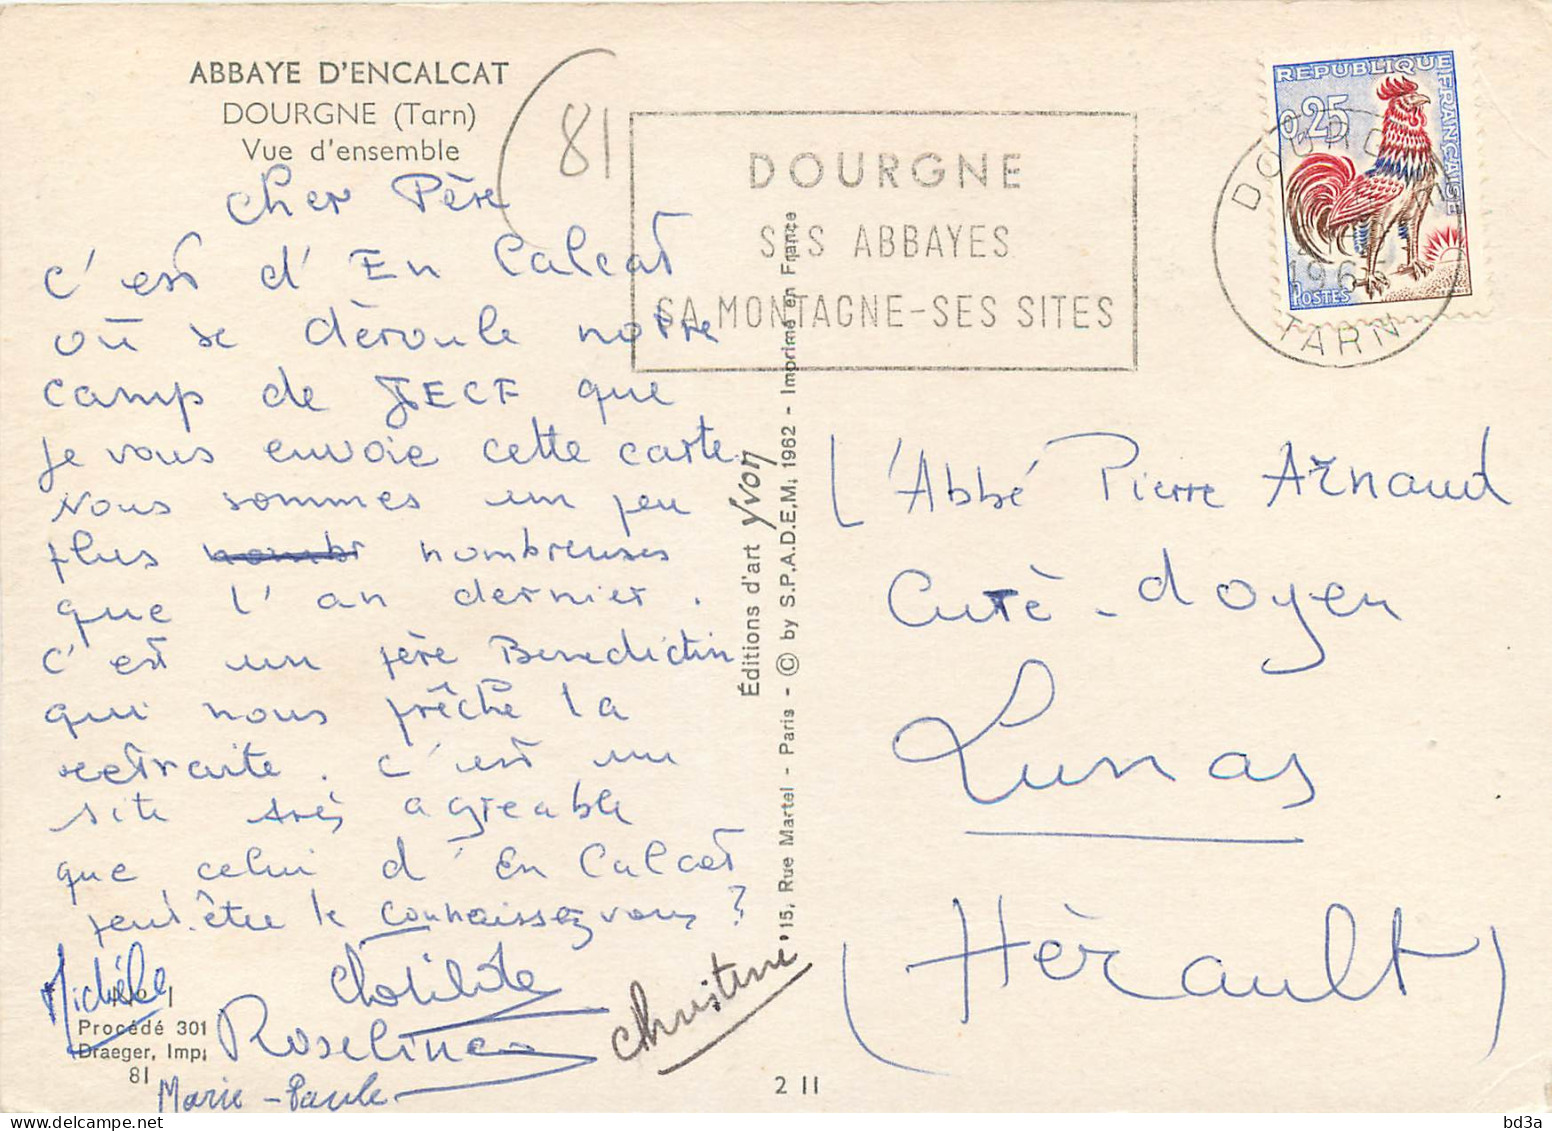 ABBAYE D'ENCALCAT
DOURGNE (Tarn)
Vue d'ensemble
81
Cher Père
C'est d'En Calcat
où se dèroule notre
camp de JECF que
je vous envoie cette carte.
Nous sommes un peu
plus nombr nombreuses
que l'an dernier.
C'est un père Benedictin
qui nous prêche la
retraite. C'est un
site très agreable
que celui d'En Calcat
peut-être le connaissez vous ?
Michéle
Clotilde
Roseline
Christine
Marie-Paule
No 1
Procédé 301
Draeger, Imp.
81
Éditions d'art Yvon
15, Rue Martel - Paris - © by S.P.A.D.E.M. 1962 - Imprimé en France
2 11
DOURGNE
SES ABBAYES
SA MONTAGNE-SES SITES
REPUBLIQUE FRANÇAISE
0,25
POSTES
DOURGNE
196
TARN
L'Abbé Pierre Arnaud
Curè-doyen
Lunas
(Hèrault)
bd3a